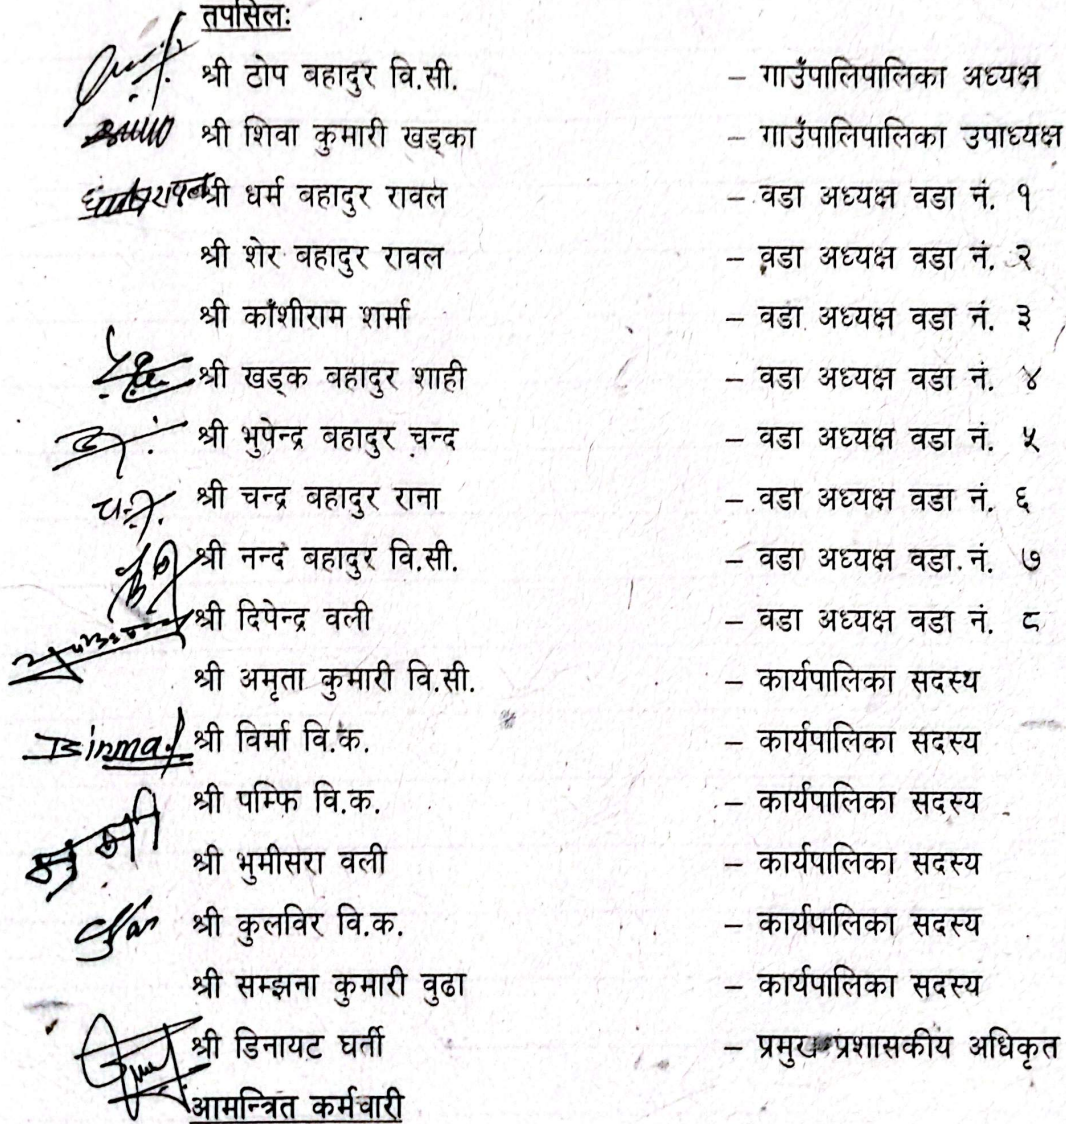 तपसिलः
श्री टोप बहादुर वि.सी. – गाउँपालिपालिका अध्यक्ष
श्री शिवा कुमारी खड्का – गाउँपालिपालिका उपाध्यक्ष
श्री धर्म बहादुर रावल – वडा अध्यक्ष वडा नं. १
श्री शेर बहादुर रावल – वडा अध्यक्ष वडा नं. २
श्री काँशीराम शर्मा – वडा अध्यक्ष वडा नं. ३
श्री खड्क बहादुर शाही – वडा अध्यक्ष वडा नं. ४
श्री भुपेन्द्र बहादुर चन्द – वडा अध्यक्ष वडा नं. ५
श्री चन्द्र बहादुर राना – वडा अध्यक्ष वडा नं. ६
श्री नन्द बहादुर वि.सी. – वडा अध्यक्ष वडा नं. ७
श्री दिपेन्द्र वली – वडा अध्यक्ष वडा नं. ८
श्री अमृता कुमारी वि.सी. – कार्यपालिका सदस्य
Birma श्री विर्मा वि.क. – कार्यपालिका सदस्य
श्री पम्फि वि.क. – कार्यपालिका सदस्य
श्री भुमीसरा वली – कार्यपालिका सदस्य
श्री कुलविर वि.क. – कार्यपालिका सदस्य
श्री सम्झना कुमारी वुढा – कार्यपालिका सदस्य
श्री डिनायट घर्ती – प्रमुख प्रशासकीय अधिकृत
आमन्त्रित कर्मचारी